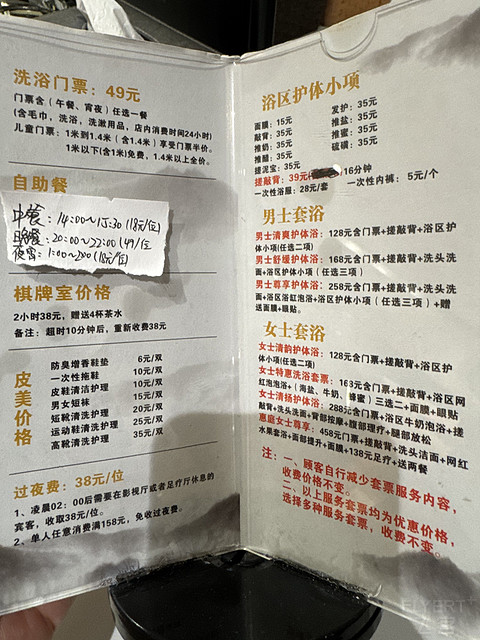 洗浴门票：49元
门票含（午餐、宵夜）任选一餐
（含毛巾，洗浴，洗漱用品，店内消费时间24小时）
儿童门票：1米到1.4米（含1.4米）享受门票半价。
1米以下(含1米)免费，1.4米以上全价。
自助餐
中餐：14:00~15:30 (18元/位)
晚餐：20:00~22:00 (49/位
夜宵：1:00~2:00 (18元/位)
棋牌室价格
2小时38元，赠送4杯茶水
备注：超时10分钟后，重新收费38元
皮美价格
防臭增香鞋垫 6元/双
一次性拖鞋 10元/双
皮鞋清洁护理 10元/双
男女短袜 15元/双
短靴清洗护理 20元/双
运动鞋清洗护理 25元/双
高靴清洗护理 35元/双
过夜费：38元/位
1、凌晨02：00后需要在影视厅或者足疗厅休息的
宾客，收取38元/位。
2、单人任意消费满158元，免收过夜费。
浴区护体小项
面膜：15元 发护：35元
敲背：35元 推盐：35元
推奶：35元 推蜜：35元
推醋：35元 硫磺：35元
搓泥宝：35元
搓敲背：39元 /16分钟
一次性浴服：28元/套 一次性内裤：5元/个
男士套浴
男士清爽护体浴：128元含门票+搓敲背+浴区护
体小项(任选二项)
男士舒缓护体浴：168元含门票+搓敲背+洗头洗
面+浴区护体小项（任选三项）
男士尊享护体浴：258元含门票+搓敲背+洗头洗
面+浴区浴缸泡浴+浴区护体小项（任选三项）+赠
送面膜+眼贴。
女士套浴
女士清韵护体浴：128元含门票+搓敲背+浴区护
体小项(任选二项)
女士特惠洗浴套票：163元含门票+搓敲背+浴区网
红泡泡浴+（海盐、牛奶、蜂蜜）三选二+面膜+眼贴
女士清扬护体浴：288元含门票+浴区牛奶泡浴+搓
敲背+洗头洗面+背部按摩+腹部理疗+腿部放松
惠庭女士尊享：458元门票+搓敲背+洗头洁面+网红
水果套浴+面部提升+面膜+138元足疗+送两餐
注：一、顾客自行减少套票服务内容，
收费价格不变。
二、以上服务套票均为优惠价格，
选择多种服务套票，收费不变。